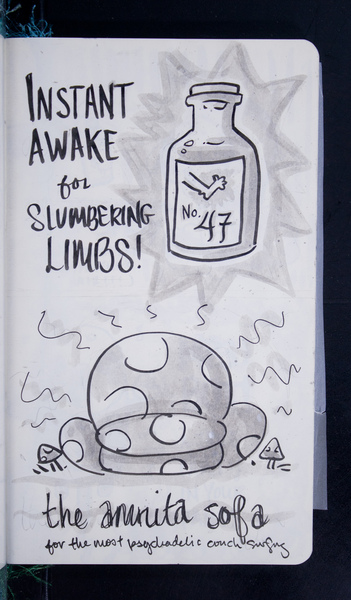 INSTANT
AWAKE
for
SLUMBERING
LIMBS!
No. 47
the amanita sofa
for the most psychadelic couch surfing